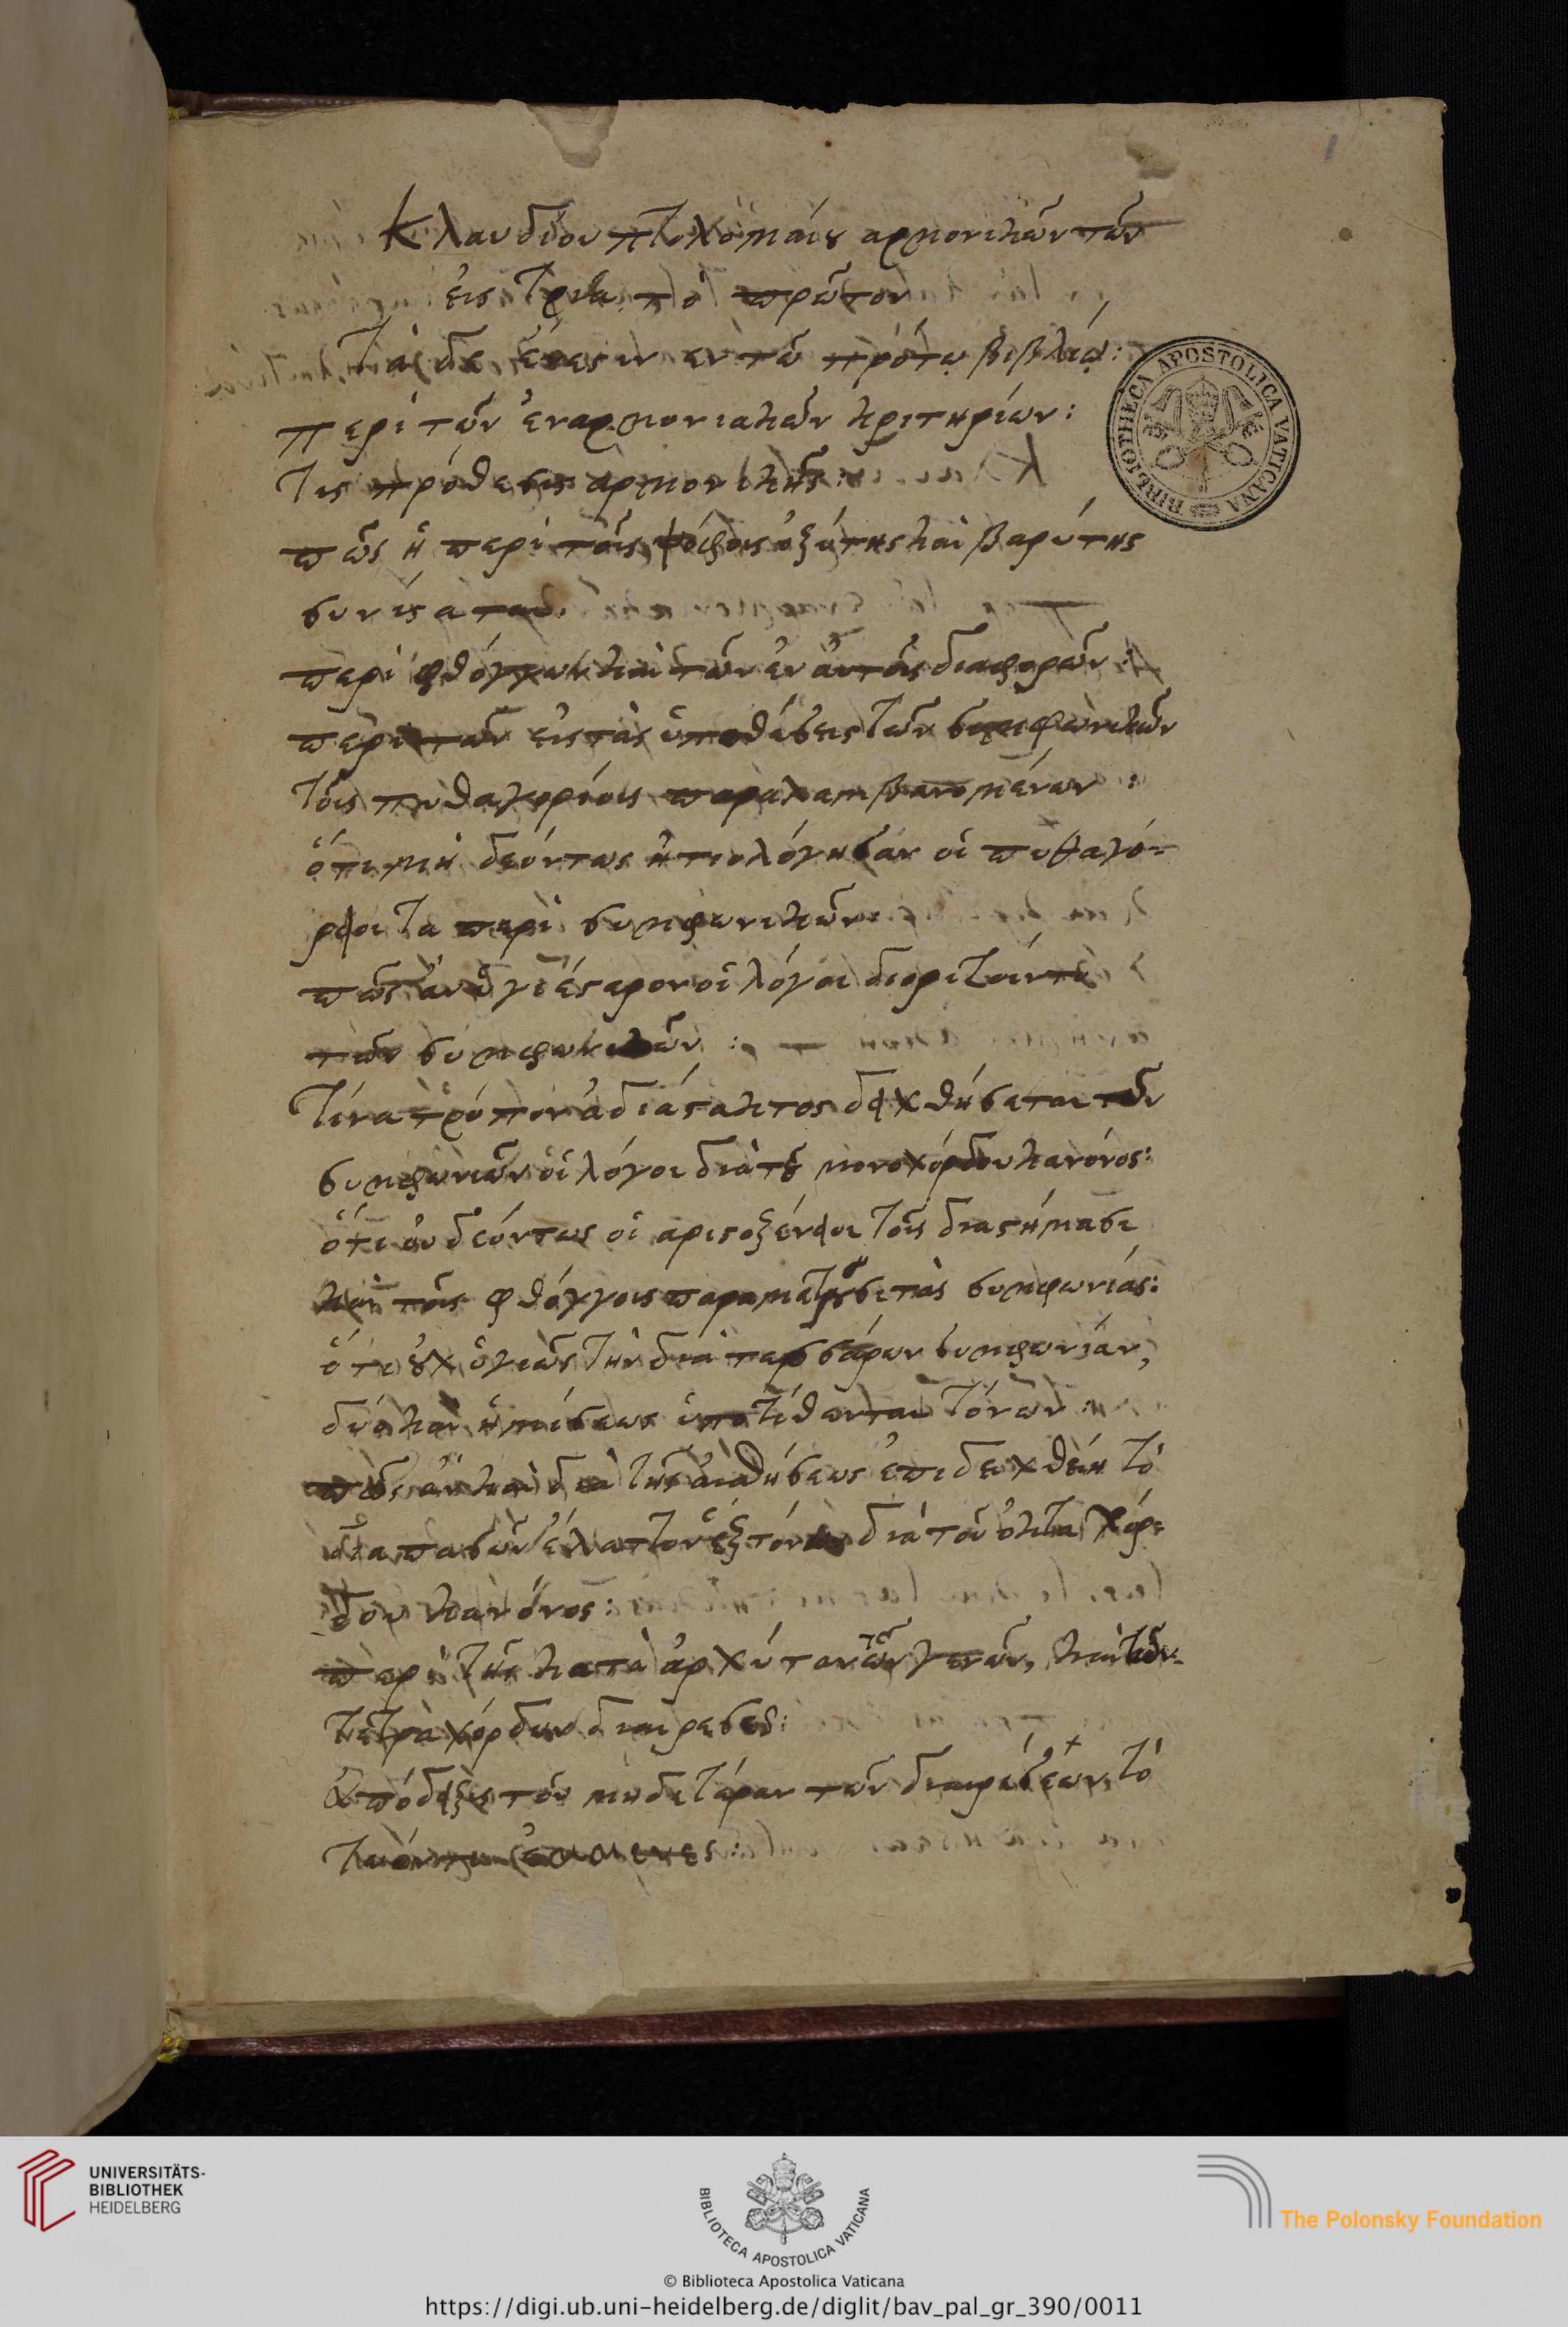 Κλαυδίου πτολομαίου αρμονικῶν τῶν
εἰς τρία τὸ πρῶτον
Τάδε ἔνεστιν εν τῶ πρότῳ βιβλίῳ:
περὶ τῶν ἐναρμονιακῶν κριτηρίων:
Τις πρόθεσις αρμονικῆς:
πῶς ἡ περὶ τοῖς ψόφοις ὀξύτης καὶ βαρύτης
συνίσταται
περὶ φθόγγων καὶ τῶν ἐν ἀυτοῖς διαφορῶν:
περὶ τῶν εἰς τὰς ὑποθέσεις τῶν συμφωνιῶν
τοῖς πυθαγορείοις παραλαμβανομένων:
ὅτι μὴ δεόντως ἠτιολόγησαν οἱ πυθαγό-
ρειοι τα περὶ συμφωνιῶν:
πῶς ἂν ὑγιέστερον οἱ λόγοι διορίζοιντο
τῶν συμφωνιῶν:
Τίνα τρόπον ἀδιάστακτος δειχθήσεται τῶν
συμφωνιῶν οἱ λόγοι διὰ τοῦ μονοχόρδου κανόνος:
ὅτι ὀυ δεόντως οἱ αριστοξένειοι τοῖς διαστήμασι
καὶ τοῖς φθόγγοις παραμετροῦσι τὰς συμφωνίας:
ὅτι οὐχ ὑγιῶς τὴν διὰ τεσσάρων συμφωνίαν,
δύο καὶ ἡμίσεως ὑποτίθενται τόνων:
πῶς ἂν καὶ διὰ τῆς ἀισθήσεως ἐπιδειχθείη τὸ
διαπασῶν ἔλαττον ἓξ τόνων διὰ τοῦ ὀκταχόρ-
δου κανόνος:
περὶ τῆς κατὰ ἀρχύταν τῶν γενῶν, καὶ τῶν
τετραχόρδων διαιρέσεως:
ἀπόδειξις τοῦ μηδετέραν τῶν διαιρέσεων, τὸ
BIBLIOTHECA APOSTOLICA VATICANA
UNIVERSITÄTS-
BIBLIOTHEK
HEIDELBERG
BIBLIOTECA APOSTOLICA VATICANA
The Polonsky Foundation
© Biblioteca Apostolica Vaticana
https://digi.ub.uni-heidelberg.de/diglit/bav_pal_gr_390/0011